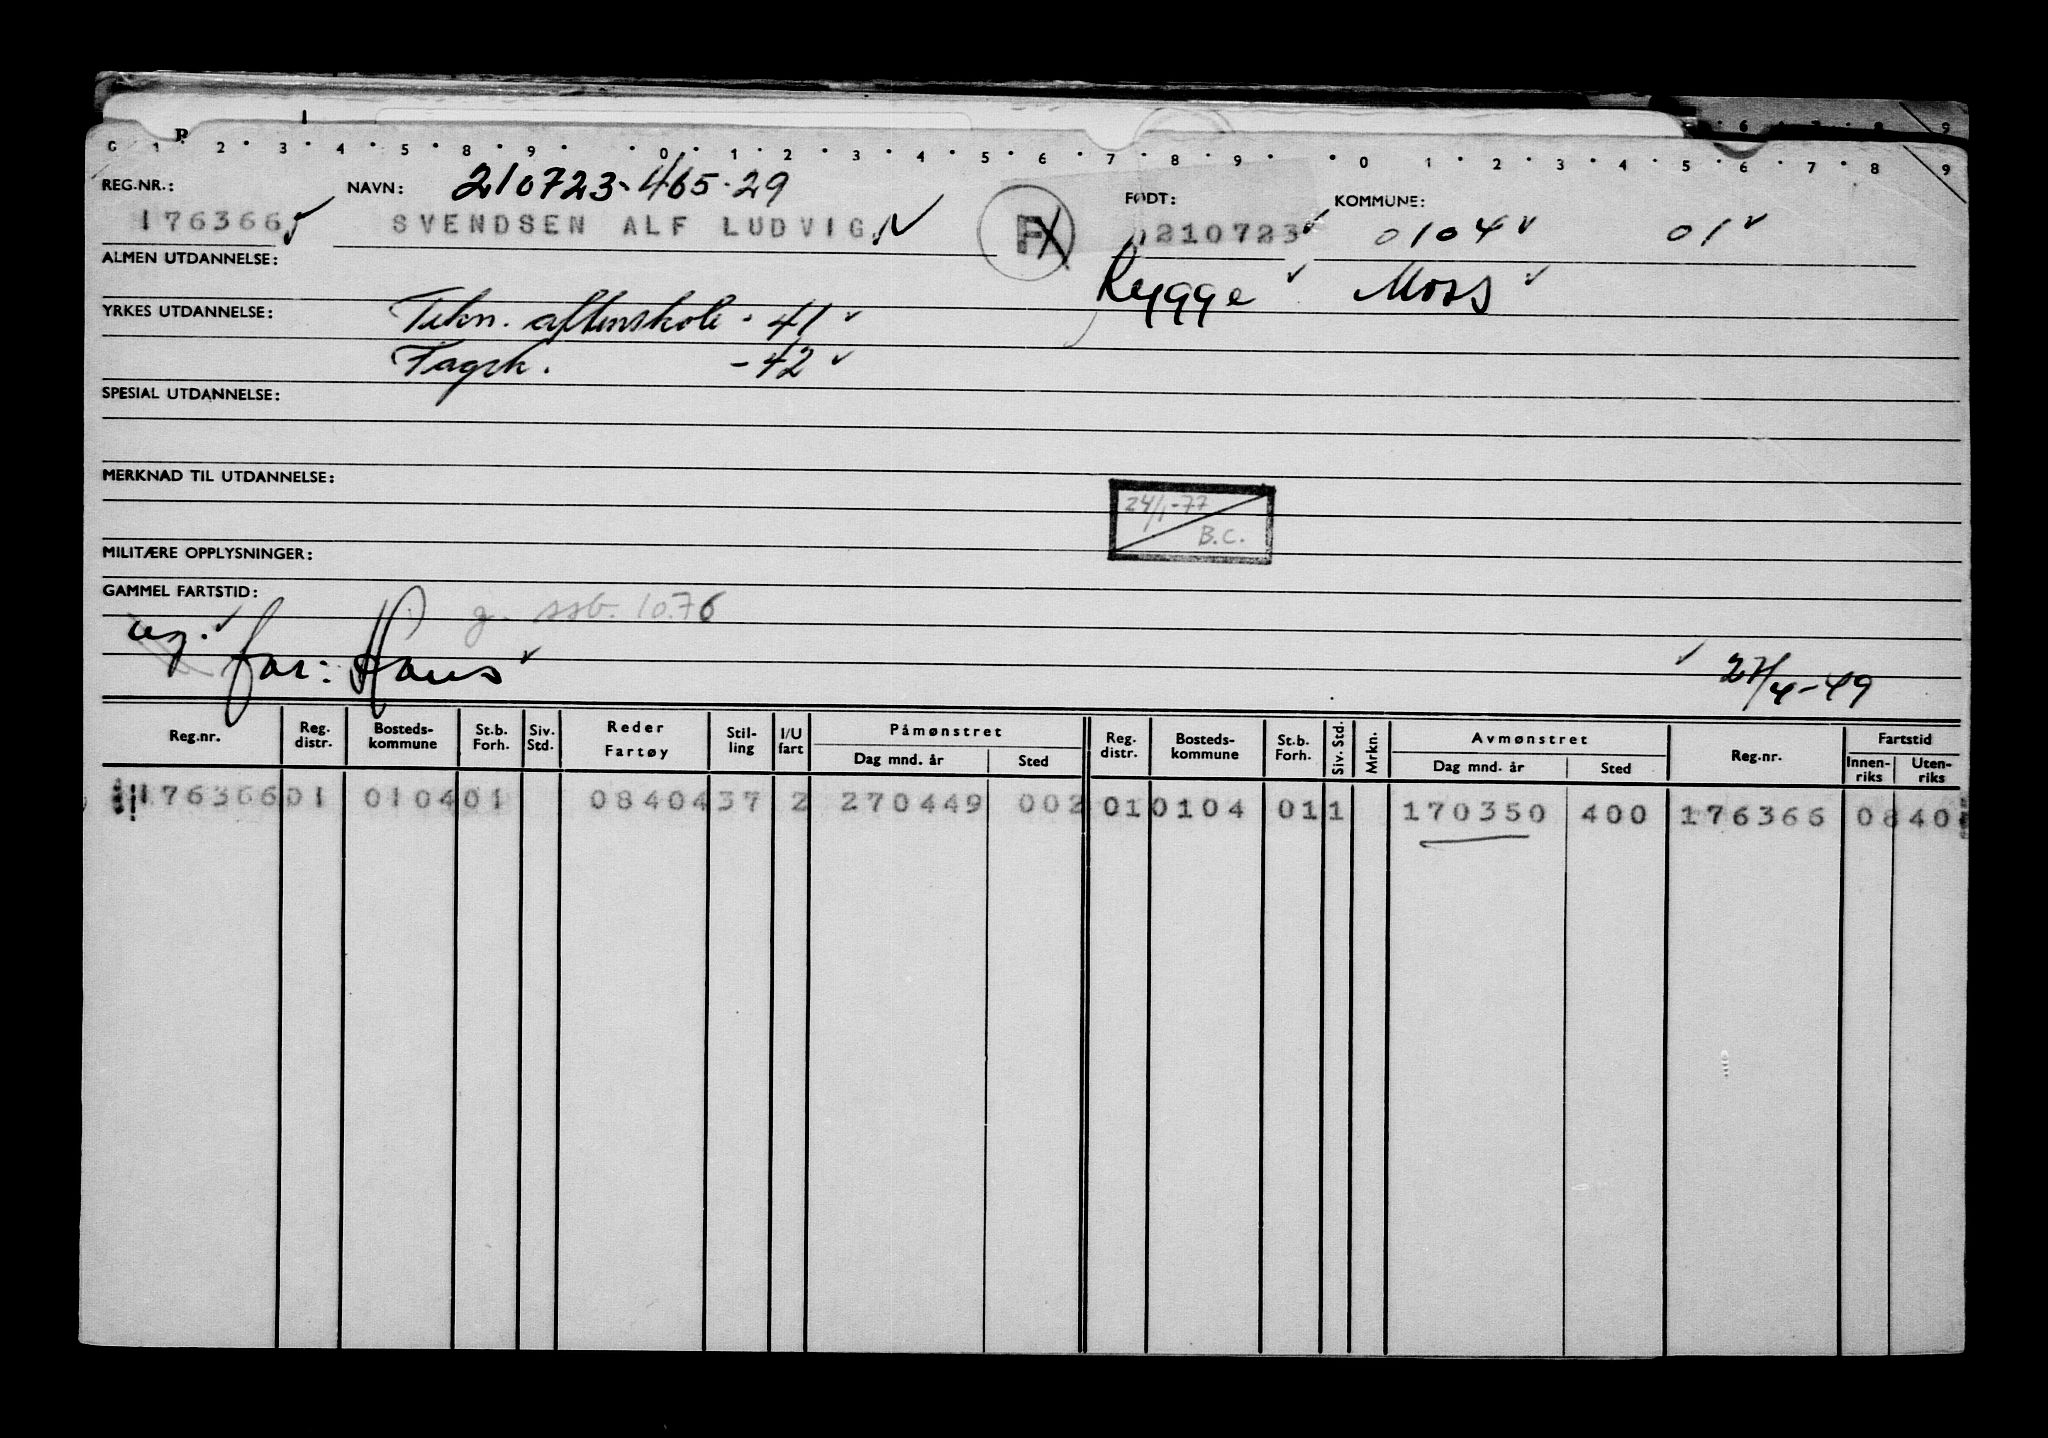 6 7 8 9
R
G 1 2 3 4 5 8 9 0 1 2 3 4 5 6 7 8 9 0 1 2 3 4 5 6 7 8 9
REG.NR.: NAVN: 210723-465-29 FØDT: KOMMUNE:
176366 SVENDSEN ALF LUDVIG F 210723 0104 01
ALMEN UTDANNELSE: Rygge Moss
YRKES UTDANNELSE: Tekn. aftenskole - 41
Fagsk. - 42
SPESIAL UTDANNELSE:
MERKNAD TIL UTDANNELSE:
24/1-77
B.C.
MILITÆRE OPPLYSNINGER:
GAMMEL FARTSTID:
g. ssb. 10.76
ug. far: Hans 27/4-49
Reg.nr. Reg. distr. Bosteds-kommune St.b. Forh. Siv. Std. Reder Fartøy Stil-ling I/U fart Påmønstret Dag mnd. år Sted Reg. distr. Bosteds-kommune St.b. Forh. Siv. Std. Mrkn. Avmønstret Dag mnd. år Sted Reg.nr. Fartstid Innen-riks Uten-riks
176366 01 0104 01 08404 37 2 270449 002 01 0104 01 1 170350 400 176366 0840